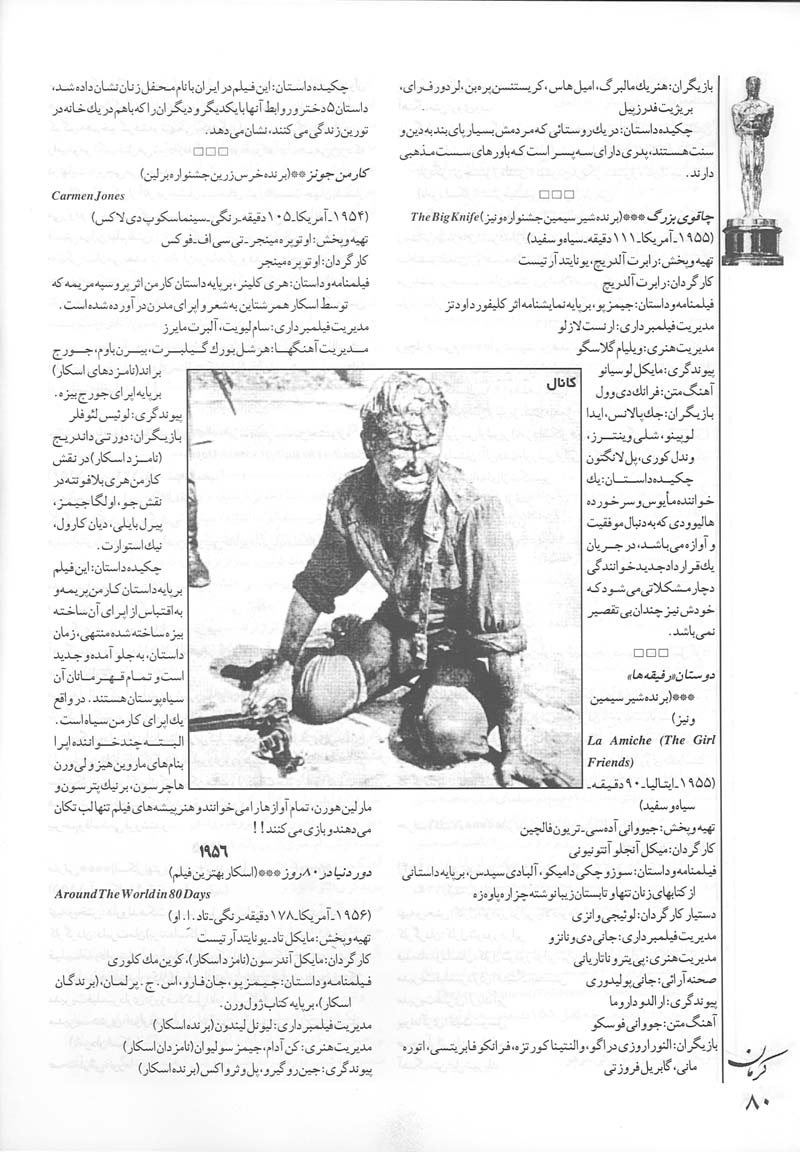 بازیگران: هنریك مالبرگ، امیل هاس، کریستنسن پره بن، لردورف رای،
بریژیت فدرزپیل
چکیده داستان: در یك روستائی که مردمش بسیار پای بند به دین و
سنت هستند، پدری دارای سه پسر است که باورهای سست مذهبی
دارند.
□□□
چاقوی بزرگ *** (برنده شیر سیمین جشنواره ونیز) The Big Knife
(۱۹۵۵ـ آمریکا ـ ۱۱۱ دقیقه ـ سیاه و سفید)
تهیه و پخش: رابرت آلدریچ، یونایتد آرتیست
کارگردان: رابرت آلدریچ
فیلمنامه و داستان: جیمز پو، بر پایه نمایشنامه اثر کلیفورد اودتز
مدیریت فیلمبرداری: ارنست لازلو
مدیریت هنری: ویلیام گلاسگو
پیوندگری: مایکل لوسیانو
آهنگ متن: فرانك دی وول
بازیگران: جك پالانس، ایدا
لوپینو، شلی وینترز،
وندل کوری، پل لانگتون
چکیده داستان: یك
خواننده مأیوس و سرخورده
هالیوودی که به دنبال موفقیت
و آوازه می باشد، در جریان
یك قرارداد جدید خوانندگی
دچار مشکلاتی می شود که
خودش نیز چندان بی تقصیر
نمی باشد.
□□□
دوستان «رفیقه ها»
*** (برنده شیر سیمین
ونیز)
La Amiche (The Girl
Friends)
(۱۹۵۵ـ ایتالیا ـ ۹۰ دقیقه ـ
سیاه و سفید)
تهیه و پخش: جیووانی آده سی ـ تریون فالچین
کارگردان: میکل آنجلو آنتونیونی
فیلمنامه و داستان: سوزوچکی دامیکو، آلبادی سیدس، بر پایه داستانی
از کتابهای زنان تنها و تابستان زیبا نوشته چزاره پاوه زه
دستیار کارگردان: لوئیجی وانزی
مدیریت فیلمبرداری: جانی دی ونانزو
مدیریت هنری: پی یترو ناتاربانی
صحنه آرائی: جانی پولیدوری
پیوندگری: ارالدو داروما
آهنگ متن: جووانی فوسکو
بازیگران: النورا روزی دراگو، والنتینا کورتزه، فرانکو فابریتسی، اتوره
مانی، گابریل فروزتی
کانال
چکیده داستان: این فیلم در ایران با نام محفل زنان نشان داده شد،
داستان ۵ دختر و روابط آنها با یکدیگر و دیگران را که با هم در یك خانه در
تورین زندگی می کنند، نشان می دهد.
□□□
کارمن جونز ** (برنده خرس زرین جشنواره برلین)
Carmen Jones
(۱۹۵۴ـ آمریکا ـ ۱۰۵ دقیقه ـ رنگی ـ سینماسکوپ دی لاکس)
تهیه و پخش: اوتو پره مینجر ـ تی سی اف ـ فوکس
کارگردان: اوتو پره مینجر
فیلمنامه و داستان: هری کلینر، بر پایه داستان کارمن اثر پروسپه مریمه که
توسط اسکار همرشتاین به شعر و اپرای مدرن در آورده شده است.
مدیریت فیلمبرداری: سام لیویت، آلبرت مایرز
مدیریت آهنگها: هرشل بورك گیلبرت، بیرن باوم، جورج
براند (نامزدهای اسکار)
بر پایه اپرای جورج بیزه.
پیوندگری: لوئیس لئوفلر
بازیگران: دورتی داندریج
(نامزد اسکار) در نقش
کارمن هری بلافونته در
نقش جو، اولگا جیمز،
پیرل بایلی، دیان کارول،
نیك استوارت.
چکیده داستان: این فیلم
بر پایه داستان کارمن پریمه و
به اقتباس از اپرای آن ساخته
بیزه ساخته شده منتهی، زمان
داستان، به جلو آمده و جدید
است و تمام قهرمانان آن
سیاه پوستان هستند. در واقع
یك اپرای کارمن سیاه است.
البته چند خواننده اپرا
بنام های ماروین هیز و لی ورن
هاچرسون، برنیك پترسون و
مارلین هورن، تمام آوازها را می خوانند و هنرپیشه های فیلم تنها لب تکان
می دهند و بازی می کنند!!
۱۹۵۶
دور دنیا در ۸۰ روز *** (اسکار بهترین فیلم)
Around The World in 80 Days
(۱۹۵۶ـ آمریکا ـ ۱۷۸ دقیقه ـ رنگی ـ تاد.اِ.او)
تهیه و پخش: مایکل تاد ـ یونایتد آرتیست
کارگردان: مایکل آندرسون (نامزد اسکار)، کوین مك کلوری
فیلمنامه و داستان: جیمز پو، جان فارو، اس. ج. پرلمان، (برندگان
اسکار)، بر پایه کتاب ژول ورن.
مدیریت فیلمبرداری: لیونل لیندون (برنده اسکار)
مدیریت هنری: کن آدام، جیمز سولیوان (نامزدان اسکار)
پیوندگری: جین روگیرو، پل وثرواکس (برنده اسکار)
کرمان
۸۰